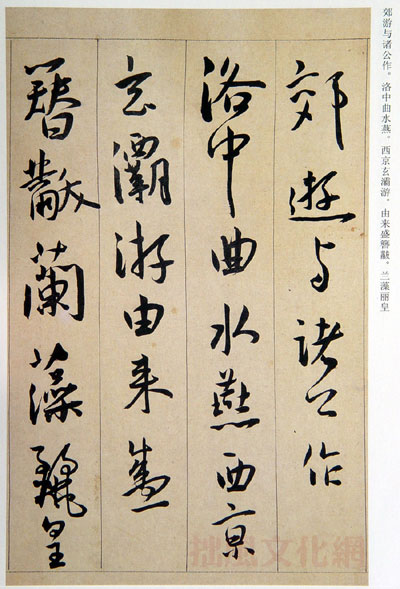 郊游与诸公作。洛中曲水燕。西京玄灞游。由来盛簪黻。兰藻丽皇
郊遊与诸公作
洛中曲水燕西京
玄灞游由来盛
簪黻蘭藻麗皇
拙风文化網